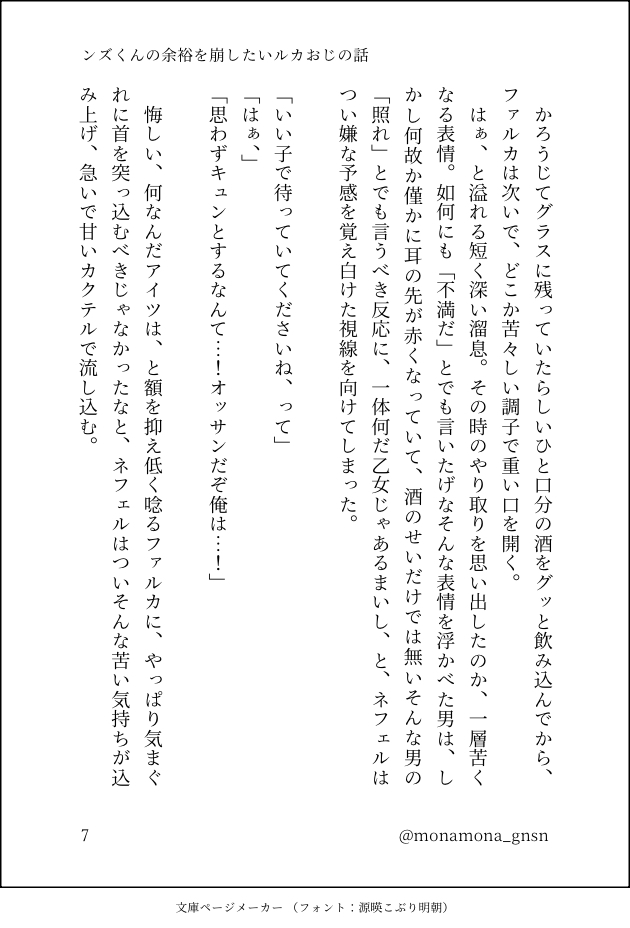 ンズくんの余裕を崩したいルカおじの話
かろうじてグラスに残っていたらしいひと口分の酒をグッと飲み込んでから、
ファルカは次いで、どこか苦々しい調子で重い口を開く。
はぁ、と溢れる短く深い溜息。その時のやり取りを思い出したのか、一層苦く
なる表情。如何にも「不満だ」とでも言いたげなそんな表情を浮かべた男は、し
かし何故か僅かに耳の先が赤くなっていて、酒のせいだけでは無いそんな男の
「照れ」とでも言うべき反応に、一体何だ乙女じゃあるまいし、と、ネフェルは
つい嫌な予感を覚え白けた視線を向けてしまった。
「いい子で待っていてくださいね、って」
「はぁ、」
「思わずキュンとするなんて…！オッサンだぞ俺は…！」
悔しい、何なんだアイツは、と額を抑え低く唸るファルカに、やっぱり気まぐ
れに首を突っ込むべきじゃなかったなと、ネフェルはついそんな苦い気持ちが込
み上げ、急いで甘いカクテルで流し込む。
7
@monamona_gnsn
文庫ページメーカー（フォント：源暎こぶり明朝）